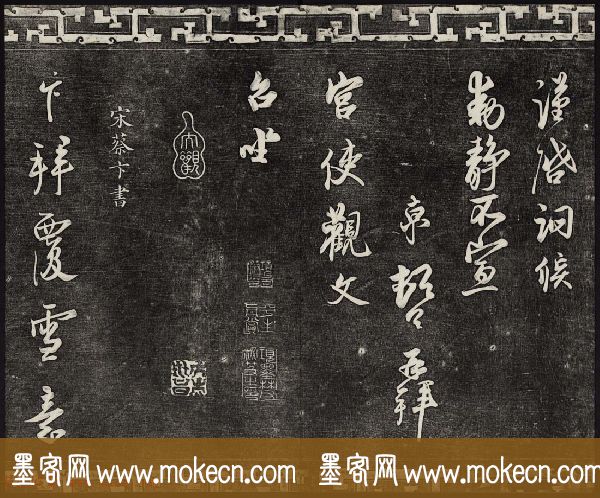 謹啓詗候
動靜不宣
京 再拜
宮使觀文
台坐
大觀
宋蔡卞書
卞拜覆雪意
墨客网 www.mokecn.com 墨客网 www.mokecn.com